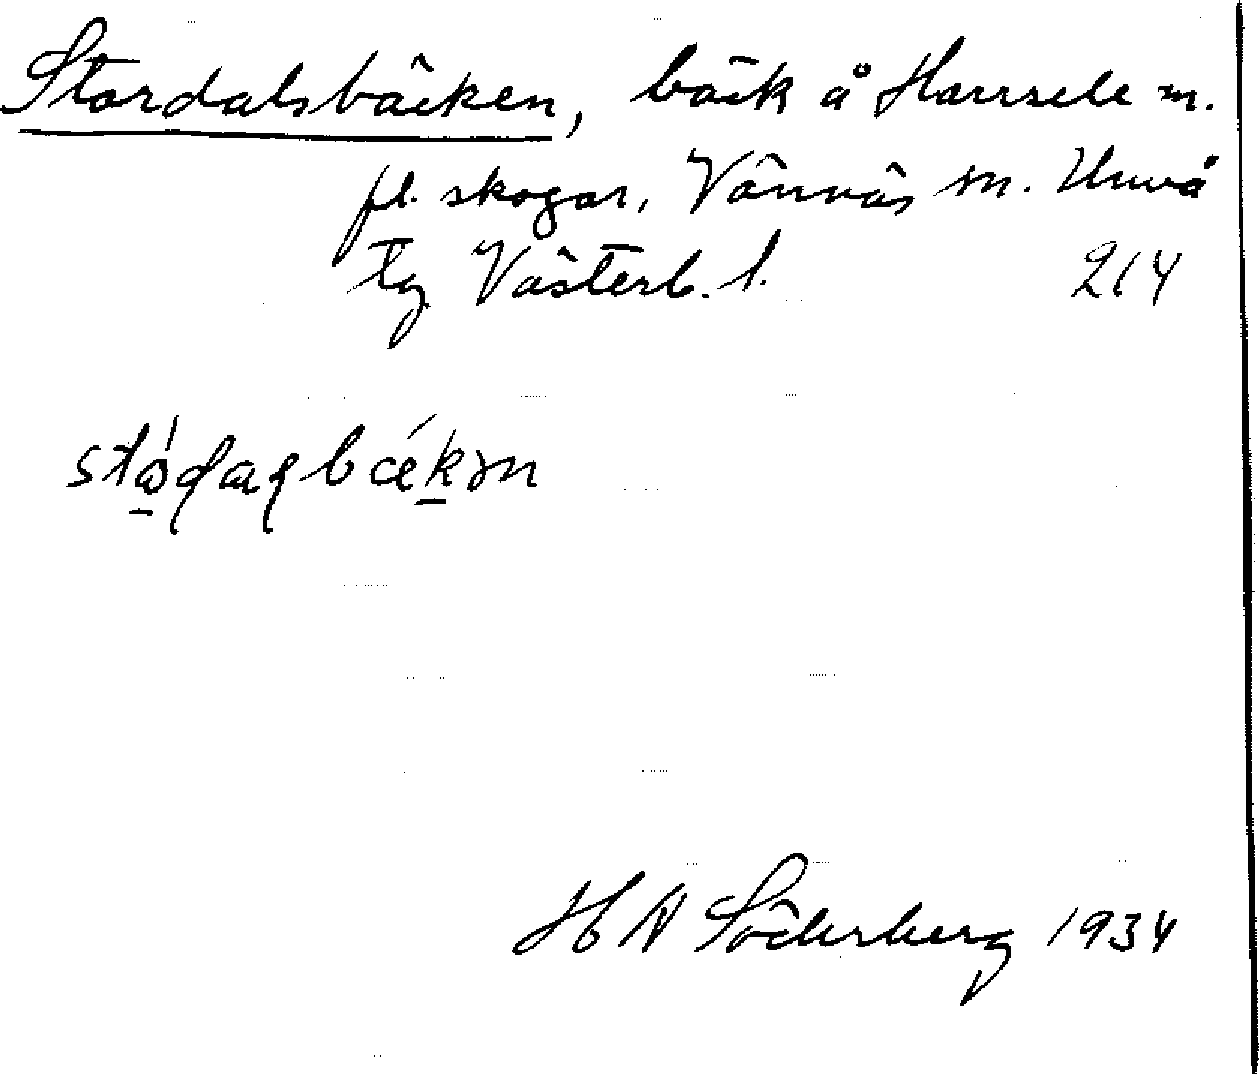 Stordalsbäcken, bäck å Harrsele m.
fl. skogar, Vännäs sn. Umeå
tg Västerb. l. 214
H N Söderberg 1934